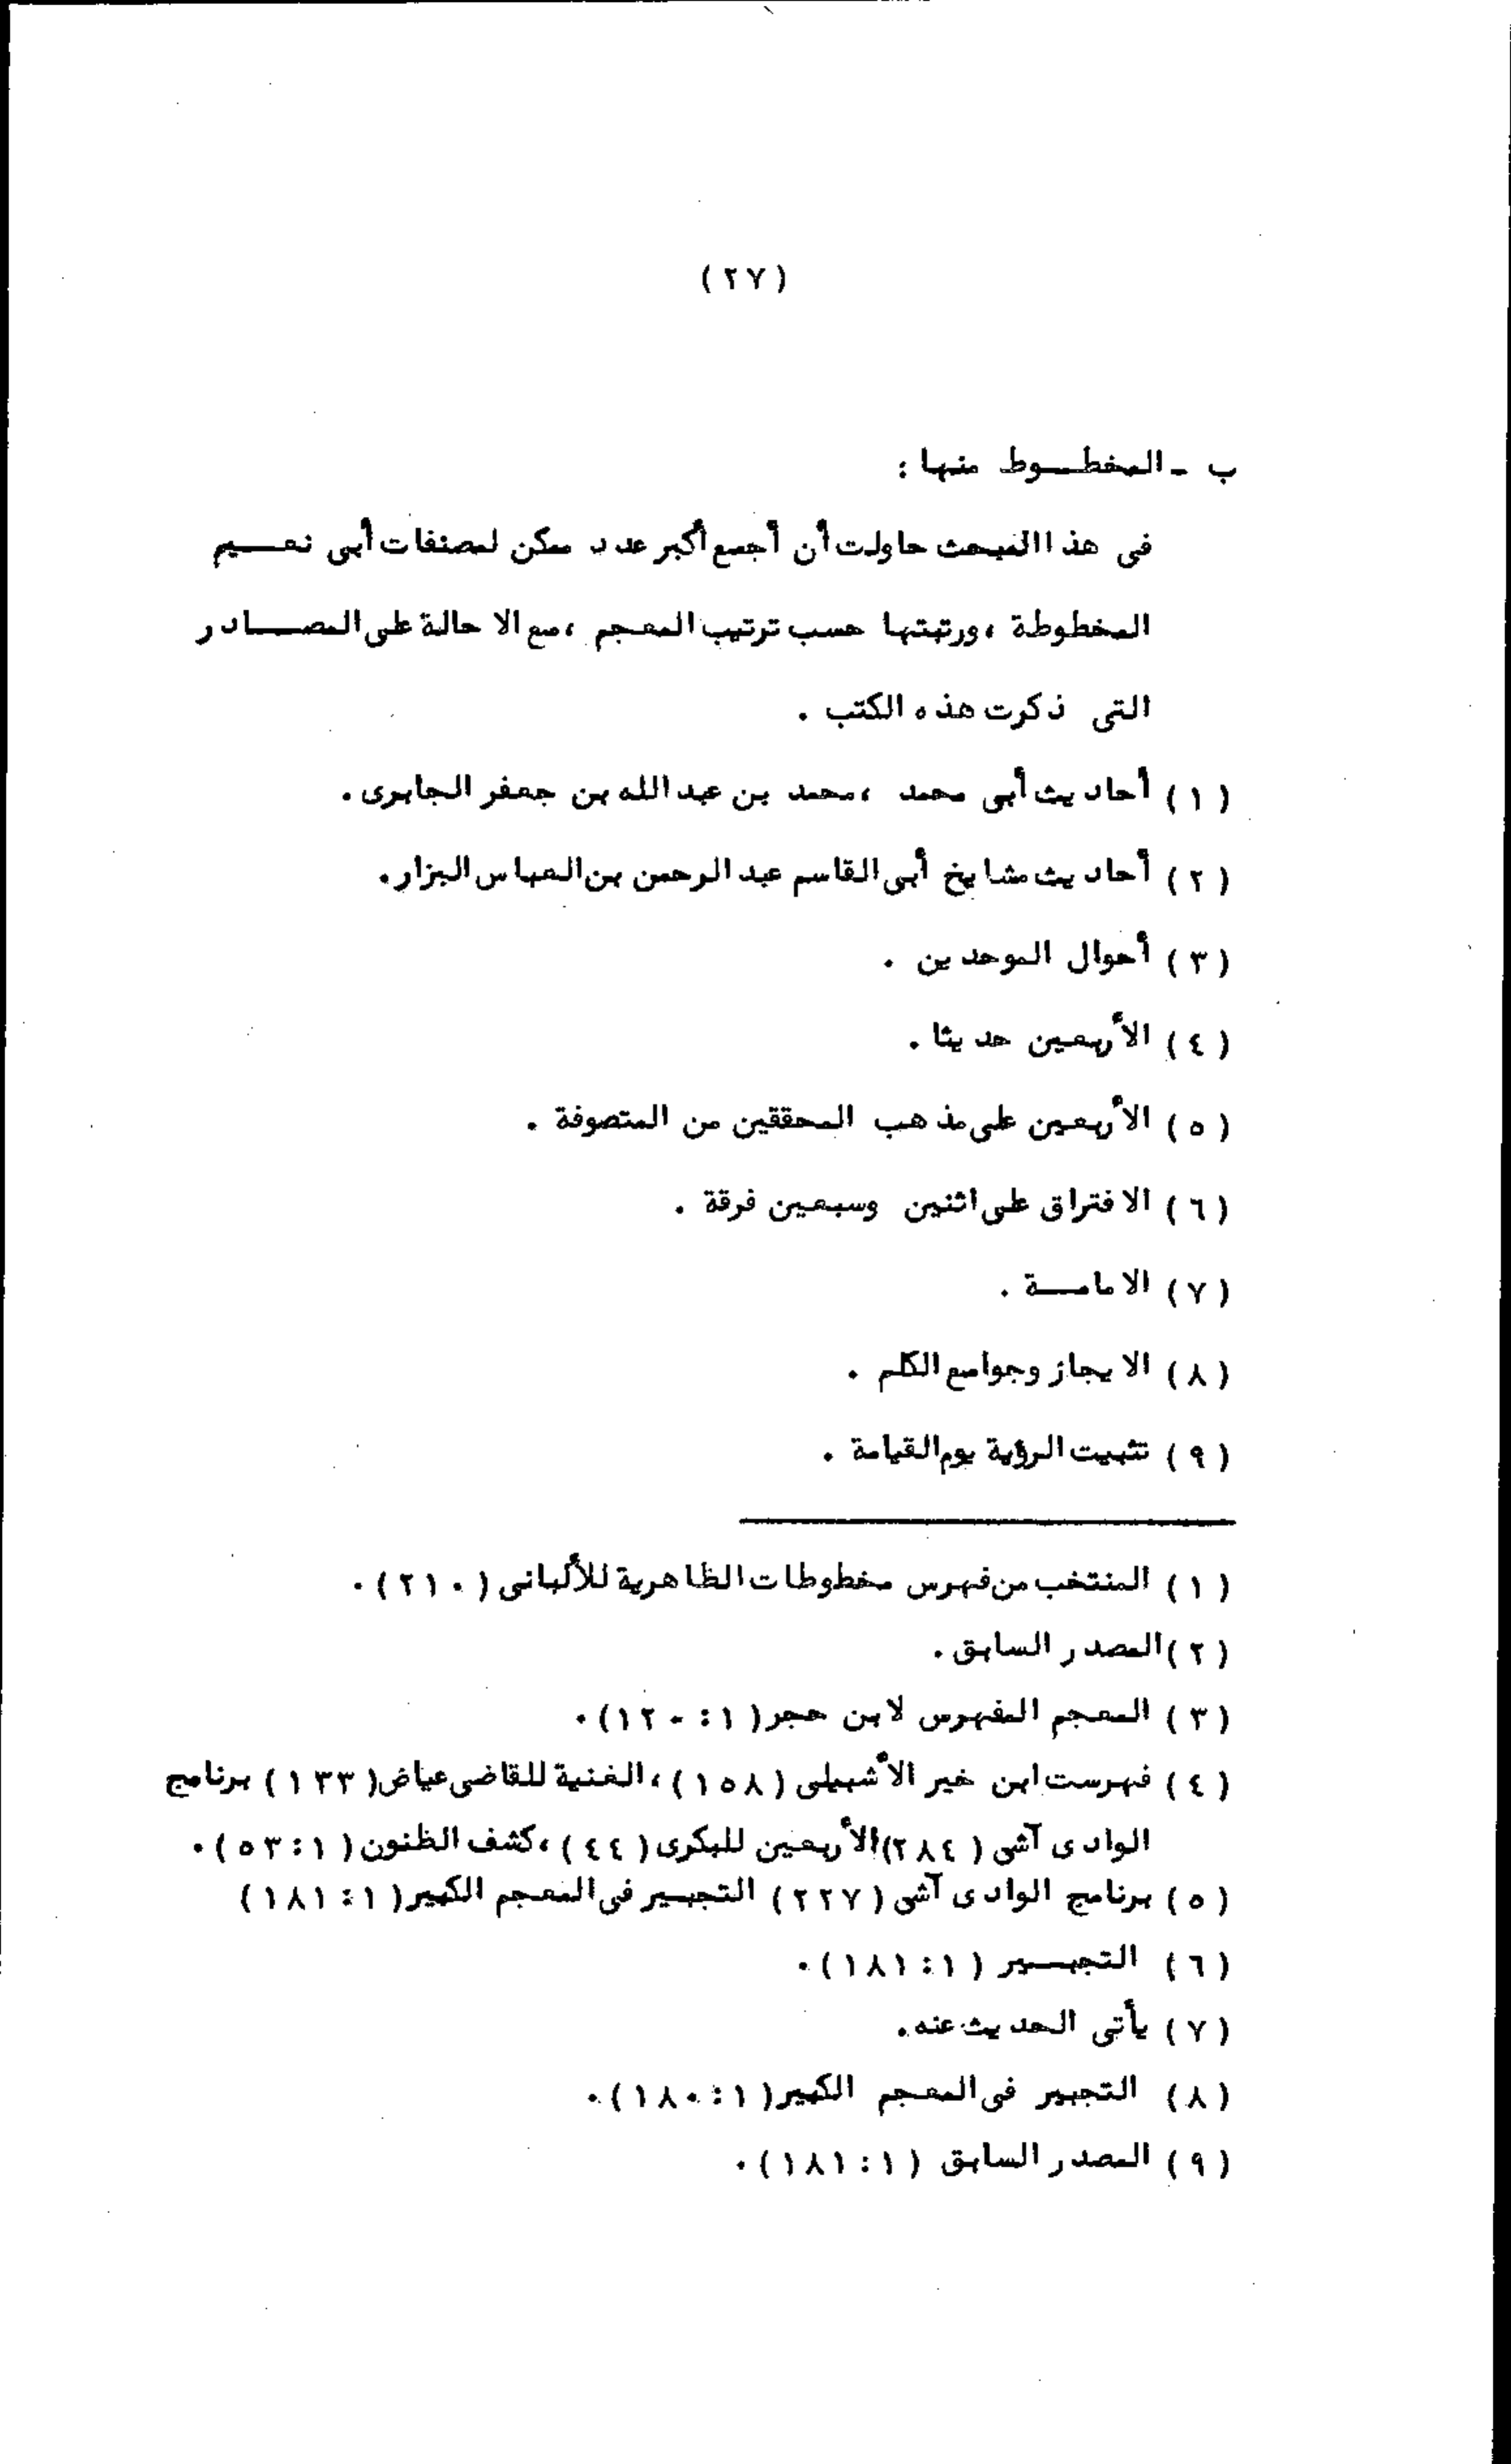 (٢٧)
ب - المخطوط منها :
فى هذا المبحث حاولت أن أجمع أكبر عدد ممكن لمصنفات أبى نعيم
المخطوطة ، ورتبتها حسب ترتيب المعجم ، مع الاحالة على المصادر
التى ذكرت هذه الكتب .
(١) أحاديث أبى محمد ، محمد بن عبدالله بن جعفر الجابرى .
(٢) أحاديث مشايخ أبى القاسم عبد الرحمن بن العباس البزار .
(٣) أحوال الموحدين .
(٤) الأربعين حديثا .
(٥) الأربعين على مذهب المحققين من المتصوفة .
(٦) الافتراق على اثنين وسبعين فرقة .
(٧) الامامة .
(٨) الايجاز وجوامع الكلم .
(٩) تثبيت الرؤية يوم القيامة .
(١) المنتخب من فهرس مخطوطات الظاهرية للألبانى (٢١٠) .
(٢) المصدر السابق .
(٣) المعجم المفهرس لابن حجر (١ : ١٢٠) .
(٤) فهرست ابن خير الأشبيلى (١٥٨) ، الغنية للقاضى عياض (١٣٣) برنامج
الوادى آشى (٢٨٤) الأربعين للبكرى (٤٤) ، كشف الظنون (١ : ٥٣) .
(٥) برنامج الوادى آشى (٢٢٧) التجبير فى المعجم الكبير (١ : ١٨١)
(٦) التجبير (١ : ١٨١) .
(٧) يأتى الحديث عنه .
(٨) التجبير فى المعجم الكبير (١ : ١٨٠) .
(٩) المصدر السابق (١ : ١٨١) .